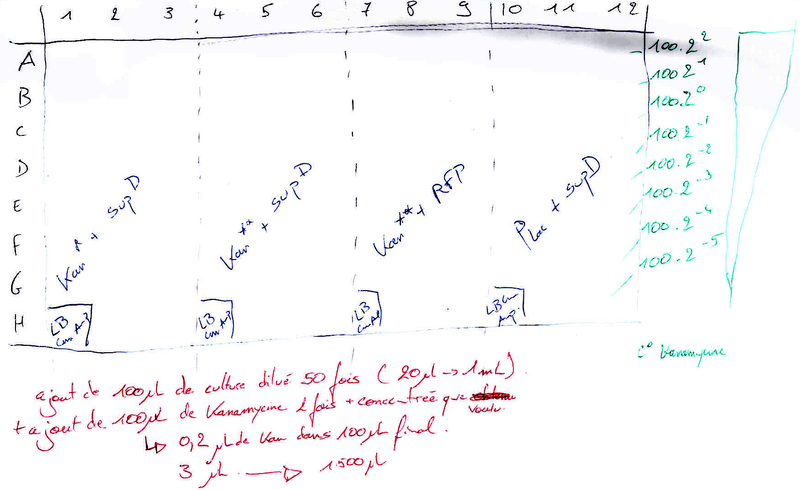 1 2 3 4 5 6 7 8 9 10 11 12
A
B
C
D
E
F
G
H
Kan* + supD
Kan** + supD
Kan** + RFP
PLac + supD
LB
LB
LB
LB
100.2²
100 2¹
100.2⁰
100.2⁻¹
100.2⁻²
100.2⁻³
100.2⁻⁴
100.2⁻⁵
C° Kanamycine
ajout de 100µl de culture dilué 50 fois (20µl → 1mL).
+ ajout de 100µl de Kanamycine 2 fois + concentrée que voulu.
↳ 0,2 µl de Kan dans 100µl final.
3 µl → 1500µl